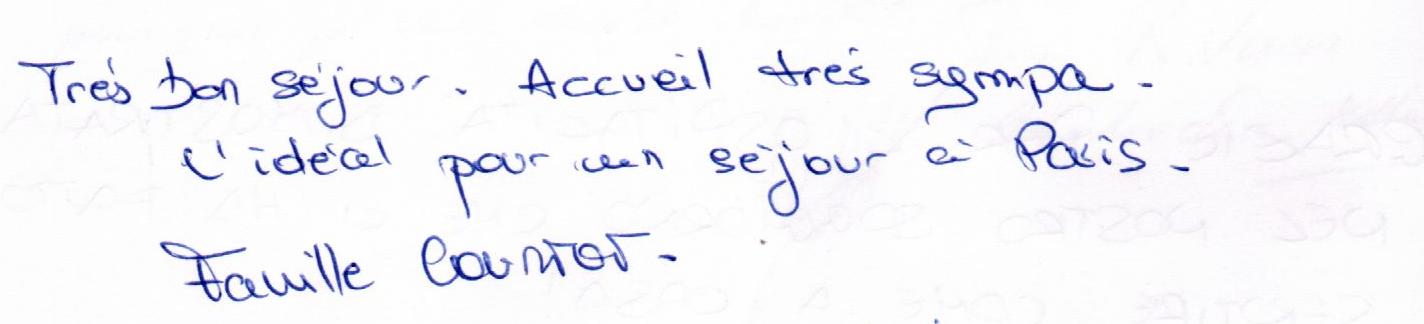 Très bon séjour. Accueil très sympa.
L'idéal pour un séjour à Paris.
Famille